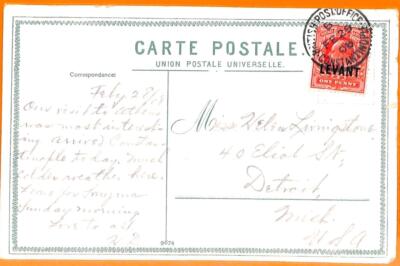 CARTE POSTALE
UNION POSTALE UNIVERSELLE.
Correspondance:
BRITISH POST OFFICE
LEVANT
ONE PENNY
Feby 28/08
Our visit to Athens
was most interest-
ing arrived Constan-
tinople to day. Much
colder weather here.
Leave for Smyrna
Sunday morning
Love to all
Miss Helen Livingstone
40 Eliot St,
Detroit,
Mich.
U.S.A